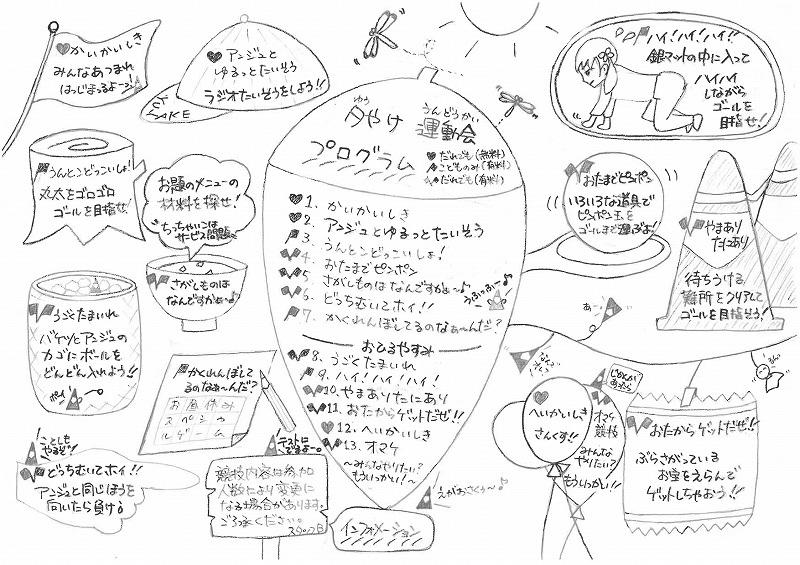 かいかいしき
みんなあつまれ
はっじまっるよー♪!
アンジュと
ゆるっとたいそう
ラジオたいそうをしよう!!
SAKE
ハイ!ハイ!ハイ!!
銀マットの中に入って
ハイハイ
しながら
ゴールを
目指せ!
ゆう うんどうかい
夕やけ 運動会
プログラム
だれでも(無料)
こどものみ(有料)
だれでも(有料)
1. かいかいしき
2. アンジュとゆるっとたいそう
3. うんとこどっこいしょ!
4. おたまでピンポン
5. さがしものはなんですかぁ~♪
うふっふー♪
6. どっちむいてホイ!!
7. かくれんぼしてるのなぁ~んだ?
おひるやすみ
8. うごくたまいれ
9. ハイ!ハイ!ハイ!
10. やまありたにあり
11. おたからゲットだぜ!!
12. へいかいしき
13. オマケ
~みんなやりたい?
もういっかい!~
うんとこどっこいしょ!
丸太をゴロゴロ
ゴールを目指せ!
お題のメニューの
材料を探せ!
ちっちゃいこは
サービス問題
さがしものは
なんですかぁ~♪
おたまでピンポン
いろいろな道具で
ピンポン玉を
ゴールまで運ぶよ!
やまあり
たにあり
待ちうける
難所をクリアして
ゴールを目指そう!
うごくたまいれ
バケツとアンジュの
カゴにボールを
どんどん入れよう!!
ポイ
かくれんぼして
るのなぁ~んだ?
お昼休み
スペシャ
ルゲーム
ことしも
やるぞ!
どっちむいてホイ!!
アンジュと同じほうを
向いたら負け
テストに
でるよー。
競技内容は参加
人数により変更に
なる場合があります。
ご了承ください。
スタッフ日
インフォメーション
えがおさくぅ~
へいかいしき
さんくす!!
じかんが
あったら
オマケ
競技
みんな
やりたい?
もういっかい!!
おたからゲットだぜ!!
ぶらさがっている
お宝をえらんで
ゲットしちゃおう!!